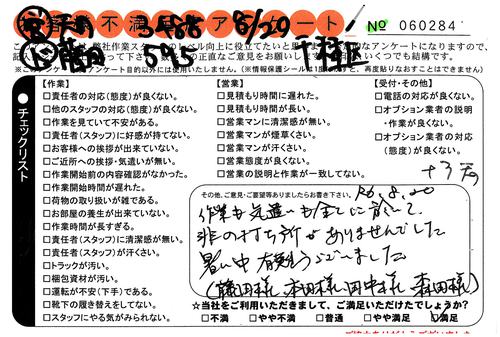 不満足アンケート
8/29
No 060284
千種区
595
弊社作業スタッフのレベル向上に役立てたいと
正直なご意見をお願いします
何枚でもいくつでも結構です。
(※このアンケート目的以外には使用いたしません。(※情報保護シールは
再度貼りなおすことはできません)
チェックリスト
【作業】
□責任者の対応(態度)が良くない。
□他のスタッフの対応(態度)が良くない。
□作業を見ていて不安がある。
□責任者(スタッフ)に好感が持てない。
□お客様への挨拶が出来ていない。
□ご近所への挨拶・気遣いが無い。
□作業開始前の内容確認がなかった。
□作業開始時間が遅れた。
□荷物の取り扱いが雑である。
□お部屋の養生が出来ていない。
□作業時間が長すぎる。
□責任者(スタッフ)に清潔感が無い。
□責任者(スタッフ)が汗くさい。
□トラックが汚い。
□梱包資材が汚い。
□運転が不安(下手)である。
□靴下の履き替えをしてない。
□スタッフにやる気がみられない。
【営業】
□見積もり時間に遅れた。
□見積もり時間が長い。
□営業マンに清潔感が無い。
□営業マンが煙草くさい。
□営業マンが汗くさい。
□営業態度が良くない。
□営業の説明と作業が一致してない。
【受付・その他】
□電話の対応が良くない。
□オプション業者の説明
・作業が良くない。
□オプション業者の対応
(態度)が良くない。
その他、ご意見・ご要望等ありましたらお書き下さい。
R6.8.20
作業も気遣いも全てに於いて
非の打ち所がありませんでした
暑い中有難うございました
(藤田様、本田様、田中様、森田様)
☆当社をご利用いただきまして、ご満足いただけたでしょうか?
□不満 □やや不満 □普通 □やや満足 □満足